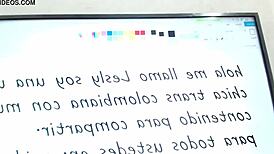 IDEOS.COM
hola me llamo Lesly soy una
chica trans colombiana con mu
contenido para compartir.
para todos ustedes